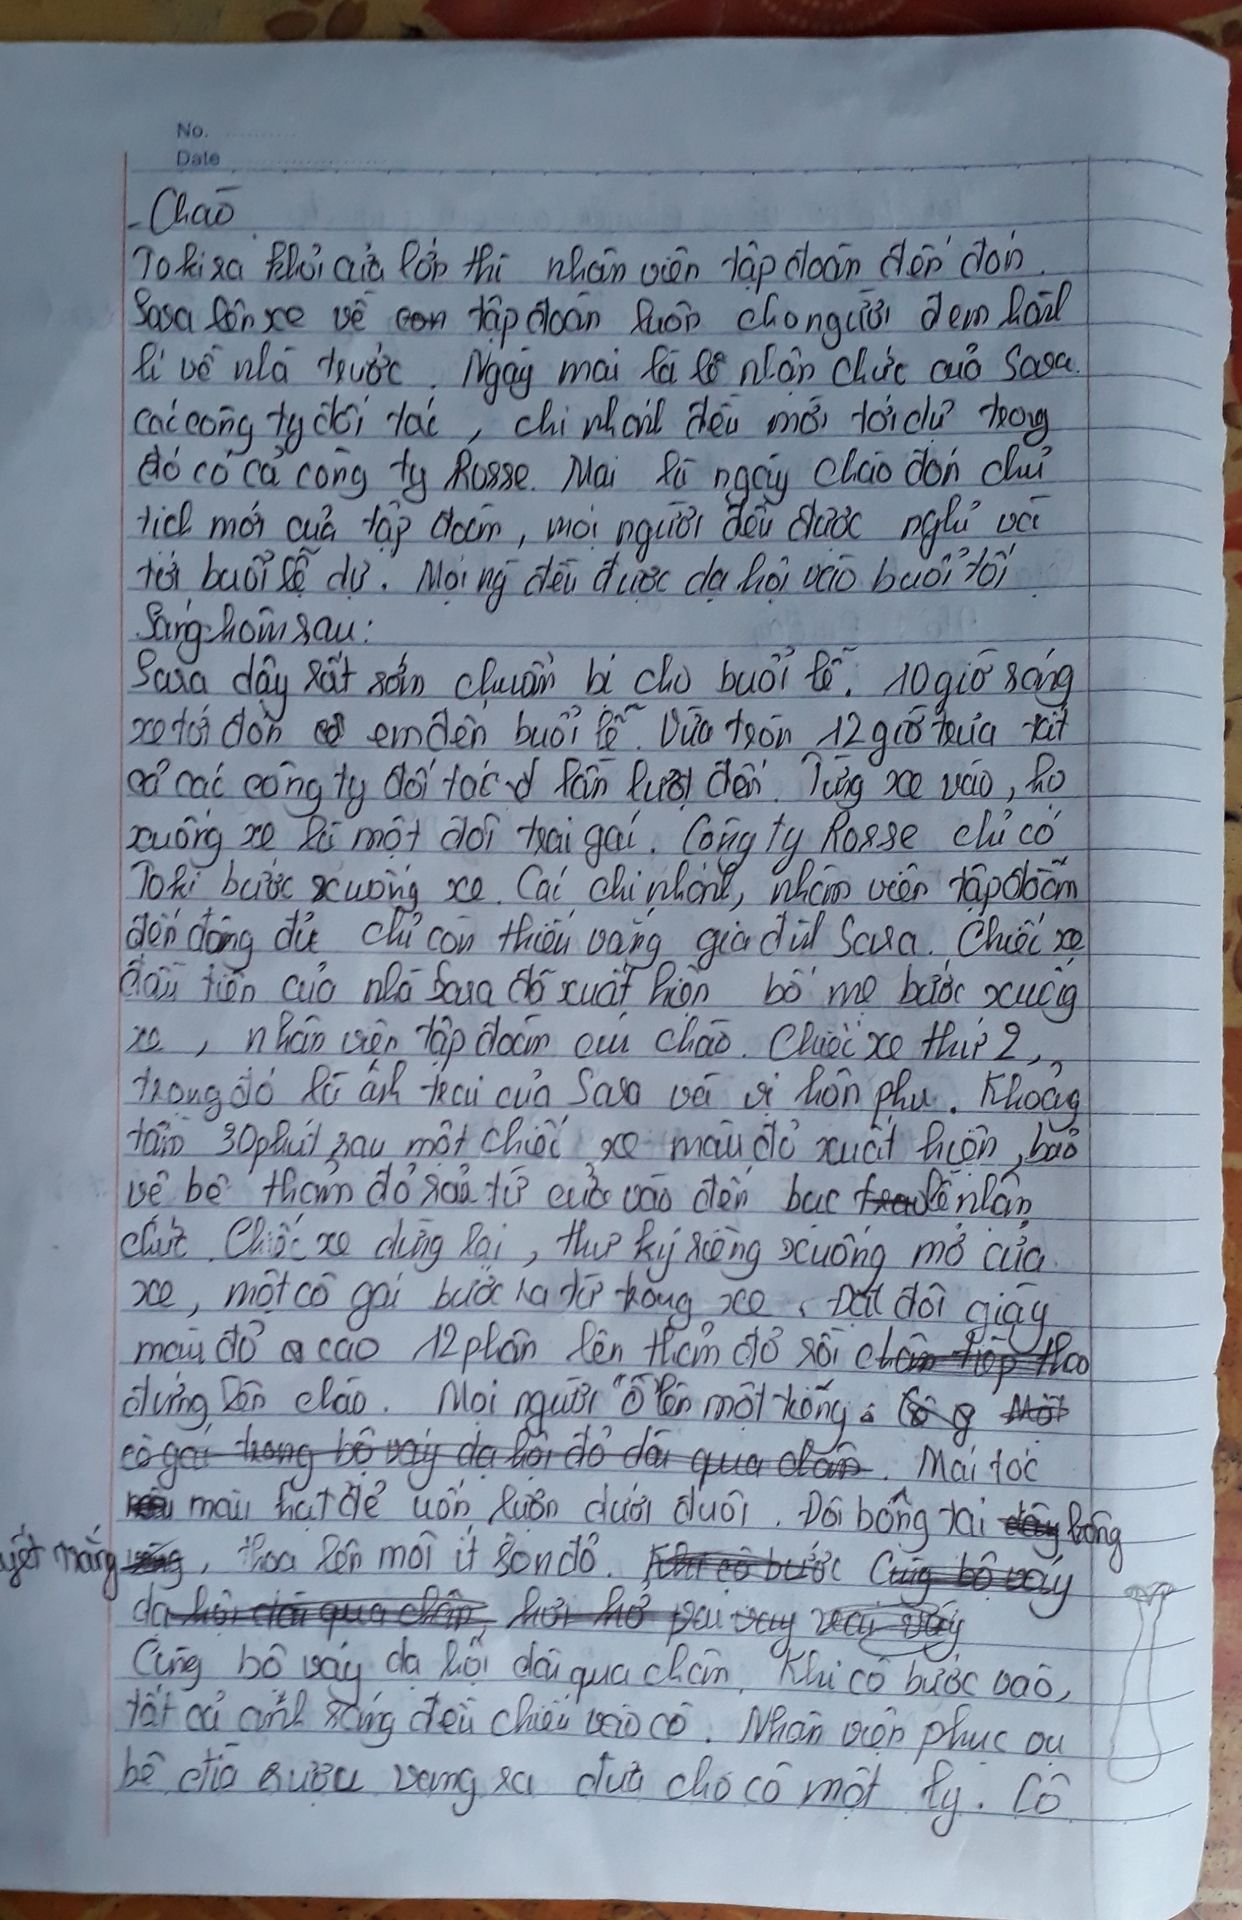 No.
Date
- Chào
Toki ra khỏi cửa lớn thì nhân viên tập đoàn đến đón.
Sara lên xe về tập đoàn luôn cho người đem hành
lí về nhà trước. Ngày mai là lễ nhận chức của Sara.
các công ty đối tác, chi nhánh đều mời tới dự trong
đó có cả công ty Rosse. Mai là ngày chào đón chủ
tịch mới của tập đoàn, mọi người đều được nghỉ và
tới buổi lễ dự. Mọi ng đều được dạ hội vào buổi tối
Sáng hôm sau:
Sara dậy rất sớm chuẩn bị cho buổi lễ. 10 giờ sáng
xe tới đón em đến buổi lễ. Vừa tròn 12 giờ trưa tất
cả các công ty đối tác lần lượt đến. Từng xe vào, họ
xuống xe là một đôi trai gái. Công ty Rosse chỉ có
Toki bước xuống xe. Các chi nhánh, nhân viên tập đoàn
đến đông đủ chỉ còn thiếu vắng gia đình Sara. Chiếc xe
đầu tiên của nhà Sara đã xuất hiện bố mẹ bước xuống
xe, nhân viên tập đoàn cúi chào. Chiếc xe thứ 2,
trong đó là anh trai của Sara và vị hôn phu. Khoảng
tầm 30 phút sau một chiếc xe màu đỏ xuất hiện, bảo
vệ bê thảm đỏ rải từ cửa vào đến bục lễ nhận
chức. Chiếc xe dừng lại, thư ký riêng xuống mở cửa
xe, một cô gái bước ra từ trong xe. Đặt đôi giày
màu đỏ cao 12 phân lên thảm đỏ rồi chân tiếp theo
đứng lên chào. Mọi người "ồ" lên một tiếng. Một
cô gái trong bộ váy dạ hội đỏ dài qua chân. Mái tóc
màu hạt dẻ uốn lượn dưới đuôi. Đôi bông tai lông
, thoa lên môi ít son đỏ. Khi cô bước Cùng bộ váy
dạ hội dài qua chân,
Cùng bộ váy dạ hội dài qua chân. Khi cô bước vào,
tất cả ánh sáng đều chiếu vào cô. Nhân viên phục vụ
bê đĩa rượu vang ra đưa cho cô một ly. Cô